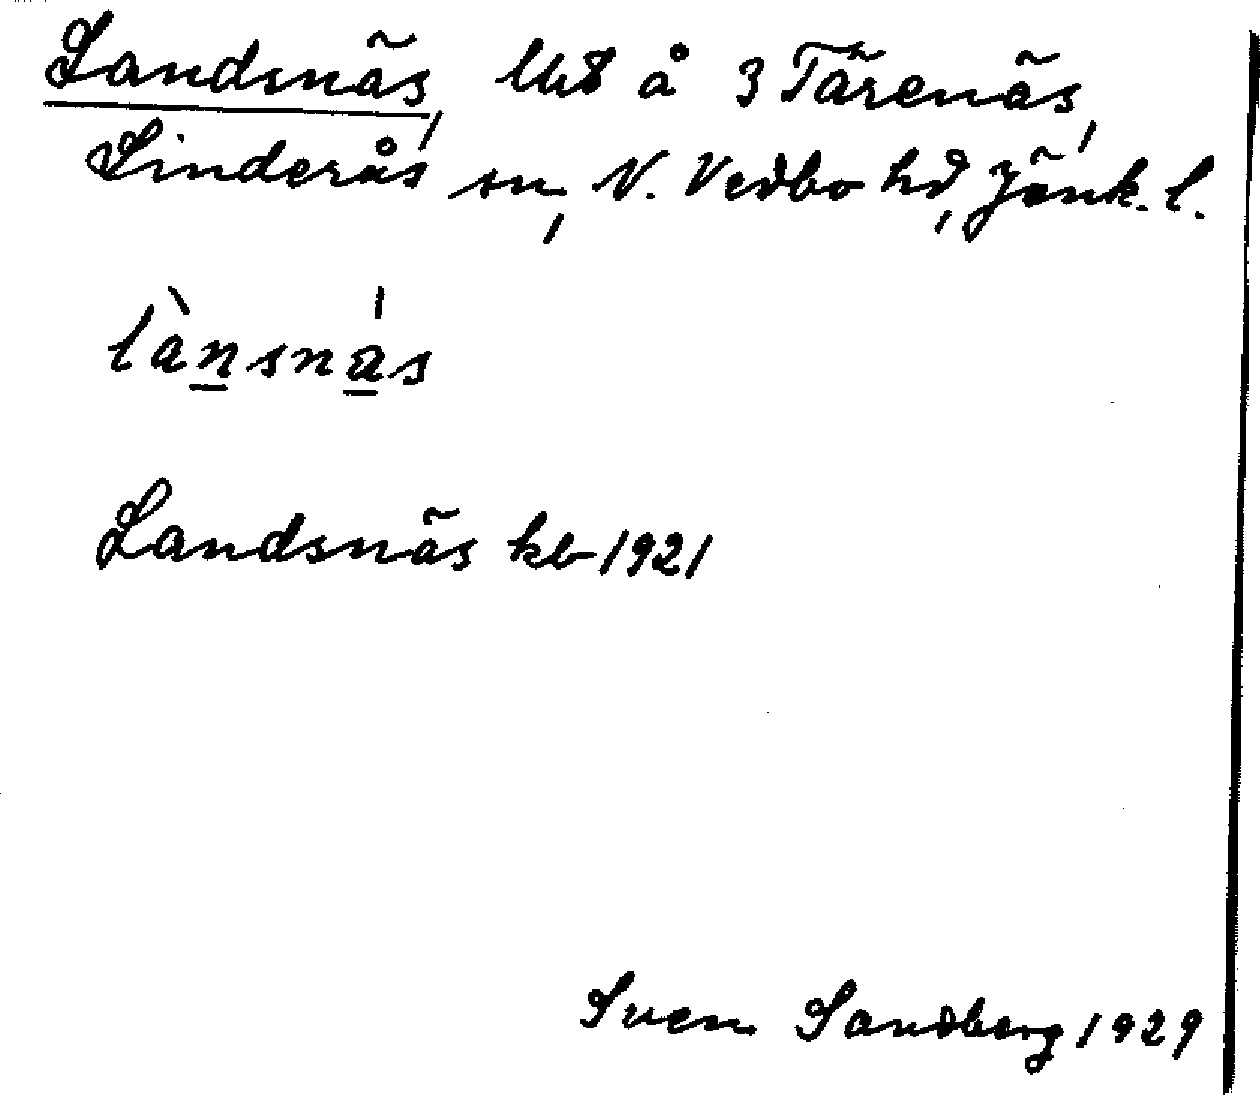 Landsnäs, lht å 3 Tärenäs,
Linderås sn, N. Vedbo hd, Jönk. l.
lànsnás
Landsnäs kb 1921
Sven Sandberg 1929